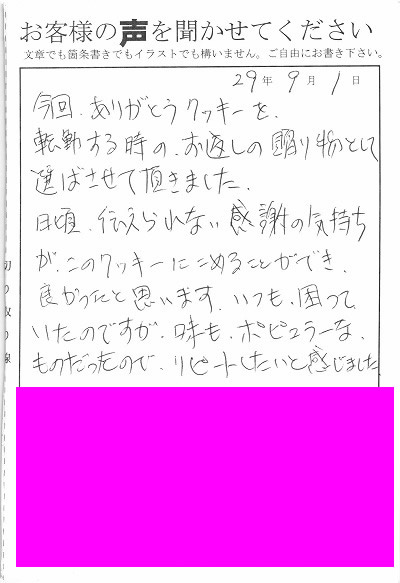 お客様の声を聞かせてください
文章でも箇条書きでもイラストでも構いません。ご自由にお書き下さい。
29年 9月 1日
今回、ありがとうクッキーを、
転勤する時の、お返しの贈り物として
選ばさせて頂きました。
日頃、伝えられない感謝の気持ち
が、このクッキーにこめることができ、
良かったと思います。いつも、困って
いたのですが、味も、ポピュラーな、
ものだったので、リピートしたいと感じました
切り取り線